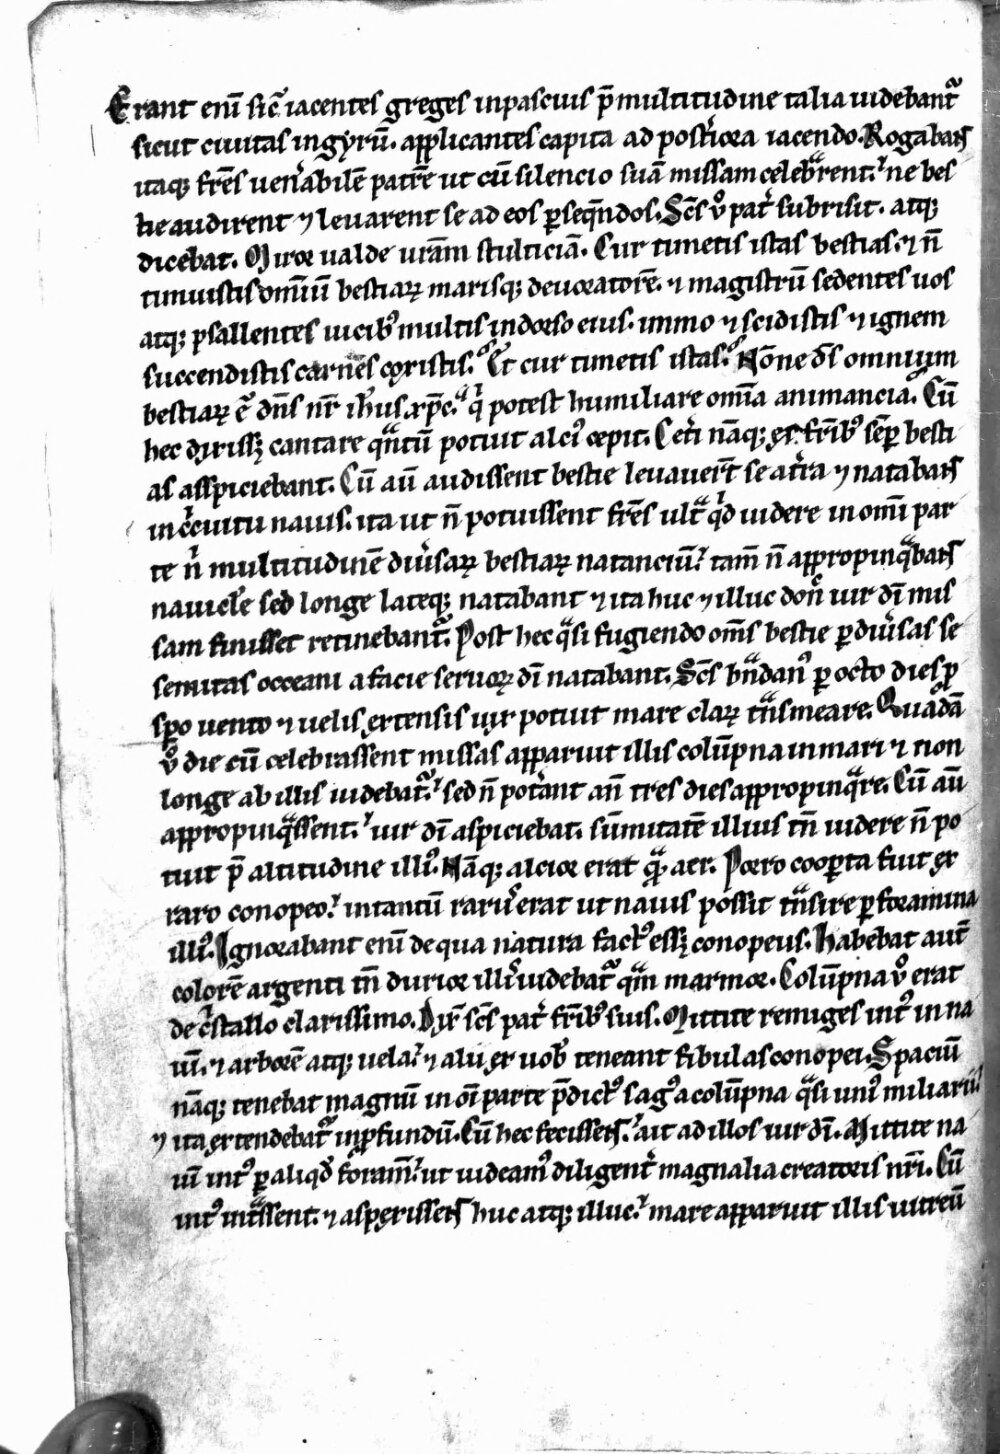 Erant enī sic̄ iacentes greges inpascuis p̄multitudine talia uidebant᷑
sicut ciuitas ingyrū. applicantes capita ad post̛iora iacendo. Rogabant
itaqꝫ fr̄es uen̛abilē patrē ut cū silencio suā missam celebᷓrent. ne bes
tie audirent ⁊ leuarent se ad eos ꝑseqn̄dos. Sc̄s v̊ pat̛ subrisit. atqꝫ
dicebat. Miror ualde uram̄ stulticiā. Cur timetis istas bestias. ⁊ n̄
timuistis om̄iū bestiaꝝ marisqꝫ deuoratorē. ⁊ magistrū sedentes uos
atqꝫ psallentes uicibꝰ multis indorso eius. immo ⁊ scidistis ⁊ ignem
succendistis carnes coxistis. Et cur timetis istas. Nōne ds̄ omnium
bestiaꝝ ē dn̄s nr̄ ih̄us xp̄c. qͥ potest humiliare omīa animanciā. Cū
hec dixissꝫ cantare qn̄tū potuit alciꝰ cepit. Cet̛i nāqꝫ ex fr̄ibꝰ sēp besti
as aspiciebant. Cū aū audissent bestie leuauer̄t se at̛ra ⁊ natabant
in cͥcuitu nauis. ita ut n̄ potuissent fr̄es ultᷓ qͥd uidere in omī par
te nͥ multitudinē diưsaꝝ bestiaꝝ natanciū. tam̄ n̄ appropinqᷓbant
nauicl̄e sed longe lateqꝫ natabant ⁊ ita huc ⁊ illuc don̄ uir dī mis
sam finisset retinebant᷑. Post hec qᷓsi fugiendo om̄s bestie ꝑ diưsas se
semitas occeani a facie seruoꝝ dī natabant. Sc̄s bn̄danꝰ ꝑ octo dies ꝓ
spo uento ⁊ uelis extensis uix potuit mare claꝝ tᷓnsmeare. Quadā
v̊ die cū celebrassent missas apparuit illis colūpna in mari ⁊ non
longe ab illis uidebat᷑. sed n̄ pot̛ant an̄ tres dies appropinqᷓre. Cū aū
appropinqᷓssent. uir dī aspiciebat. sūmitatē illius tn̄ uidere n̄ po
tuit p̄ altitudine illiꝰ. Nāqꝫ alcior erat qᷓ aer. Porro cooꝑta fuit ex
raro conopeo. intantū rarꝰ erat ut nauis possit tᷓnsire ꝑ foramina
illiꝰ. Ignorabant enī de qua natura factꝰ essꝫ conopeus. Habebat aut̄
colorē argenti tn̄ durior illͥ uidebat᷑ qᷓm marmor. Colūpna v̊ erat
de cͥstallo clarissimo. Dix̄ sc̄s pat̛ fr̄ibꝰ suis. Mittite remiges intꝰ in na
uī. ⁊ arborē atqꝫ uela. ⁊ alii ex uob̄ teneant fibulas conopei. Spaciū
nāqꝫ tenebat magnū in oī parte p̄dictꝰ sagꝰ a colūpna qᷓsi unꝰ miliarii.
⁊ ita extendebat᷑ inꝓfundū. Cū hec fecissent. ait ad illos uir dī. Mittite na
uī intꝰ ꝑ aliqd̄ foram̄. ut uideamꝰ diligent̛ magnalia creatoris nr̄i. Cū
intꝰ intᷓssent. ⁊ aspexissent huc atqꝫ illuc. mare apparuit illis uitreū